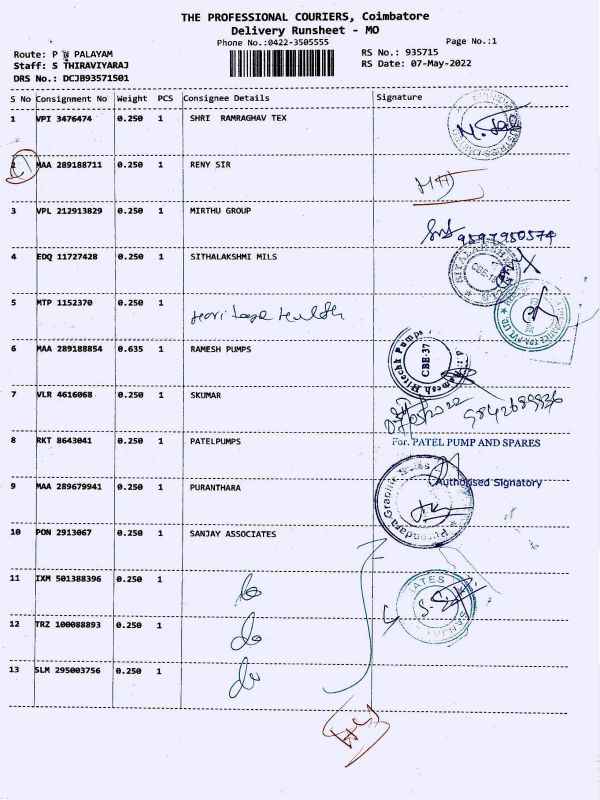 THE PROFESSIONAL COURIERS, Coimbatore
Delivery Runsheet - MO
Phone No.:0422-3505555
Page No.:1
Route: P N PALAYAM
RS No.: 935715
Staff: S THIRAVIYARAJ
RS Date: 07-May-2022
DRS No.: DCJB93571501
S No Consignment No Weight PCS Consignee Details Signature
1 VPI 3476474 0.250 1 SHRI RAMRAGHAV TEX
2 MAA 289188711 0.250 1 RENY SIR
3 VPL 212913829 0.250 1 MIRTHU GROUP
9597950574
4 EDQ 11727428 0.250 1 SITHALAKSHMI MILS
5 MTP 1152370 0.250 1 Heritage Health
6 MAA 289188854 0.635 1 RAMESH PUMPS
Ramesh Hitechh Pumps
CBE-37
7 VLR 4616068 0.250 1 SKUMAR
07/05/2022
8 RKT 8643041 0.250 1 PATELPUMPS
For. PATEL PUMP AND SPARES
Authorised Signatory
9 MAA 289679941 0.250 1 PURANTHARA
10 PON 2913067 0.250 1 SANJAY ASSOCIATES
11 IXM 501388396 0.250 1 do
12 TRZ 100088893 0.250 1 do
13 SLM 295003756 0.250 1 do